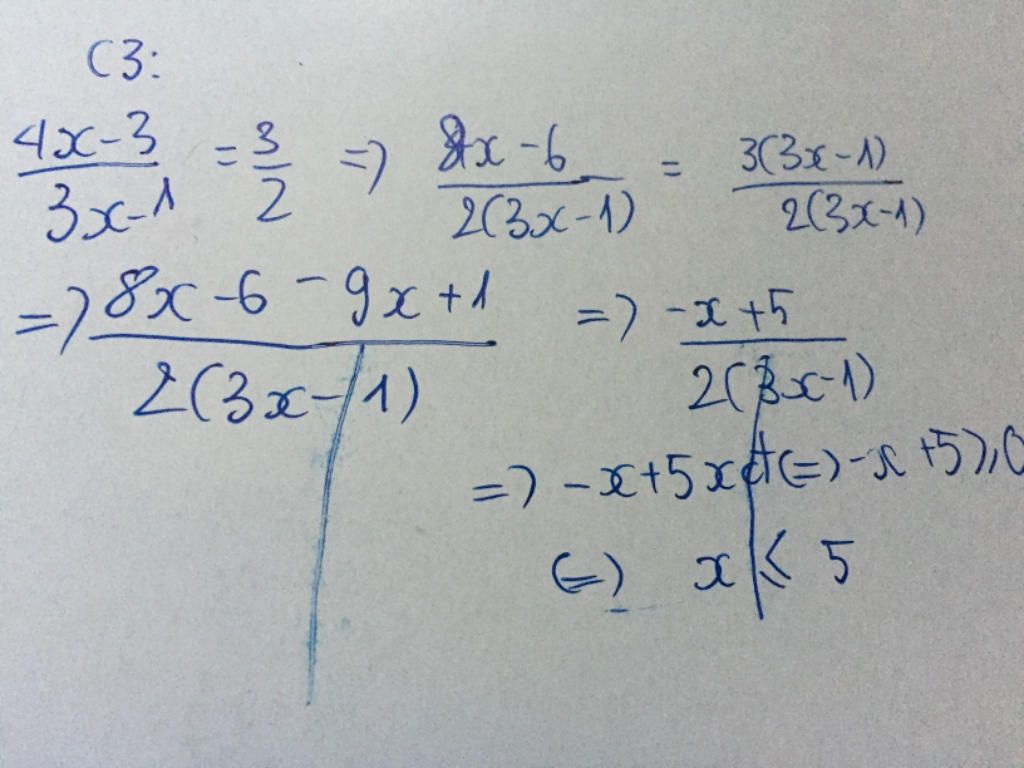 C3:
(4x-3)/(3x-1) = 3/2 => (8x-6)/(2(3x-1)) = (3(3x-1))/(2(3x-1))
=> (8x-6-9x+1)/(2(3x-1)) => (-x+5)/(2(3x-1))
=> -x+5 xđ (=> -x+5 ⩾ 0
(=) x ⩽ 5